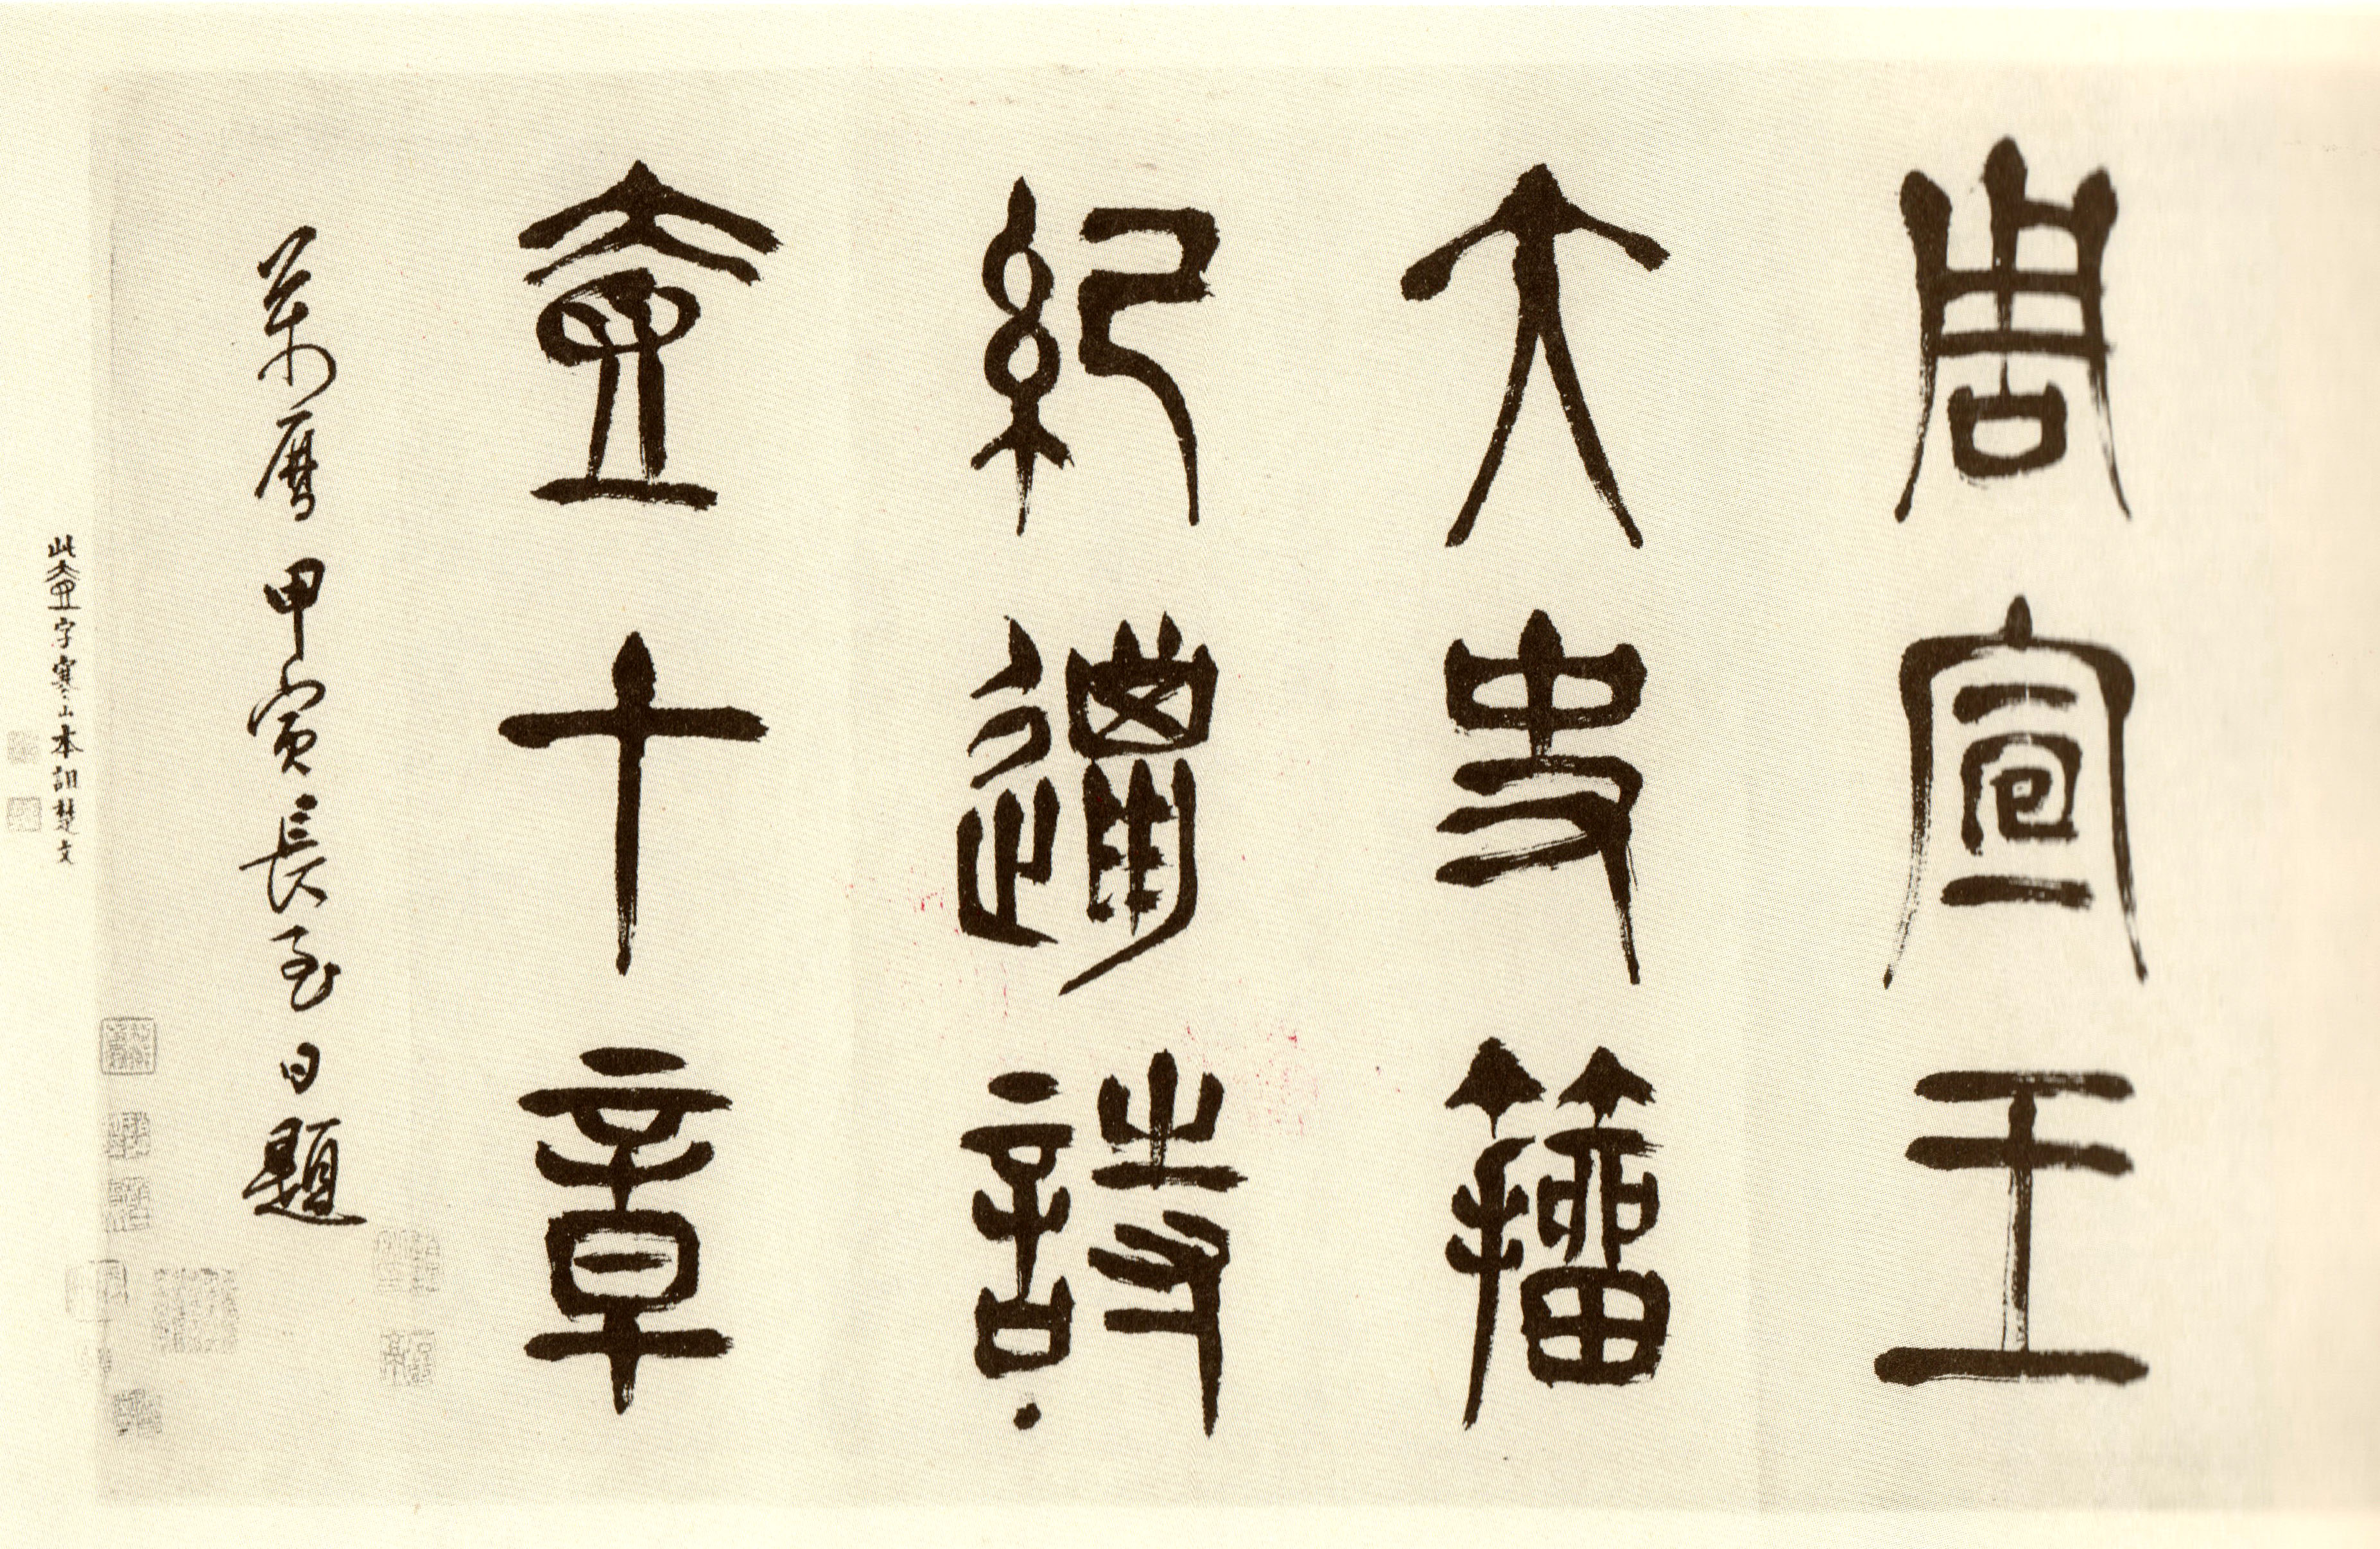 周宣王
大史籀
紀邋詩
壹十章
萬曆甲寅長至日題
此壹字寒山本詛楚文